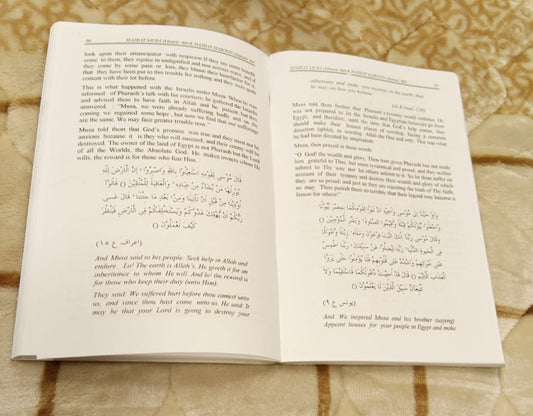 96 HADRAT MUSA (Moses) AND HADRAT HAROON (Aaron)
look upon their emancipator with suspicion If they see some trouble
come to them, they rejoice in undignified and non serious ways, and if
they come by some pain or loss, they blame their benefactor for it,
that they have been put to this trouble for nothing and they were quite
content with their lot before.
This is what happened with the Israelis under Musa. When he was
informed of Pharaoh's talk with his courtiers, he gathered the Israelis
and advised them to have faith in Allah and be patient, but they
answered, "Musa, we were already suffering badly, and on thy
coming we regained some hope, but now we find that our sufferings
are the same. We may face greater trouble now."
Musa told them that God's promise was true and they need not be
anxious because it is they who will succeed; and their enemy will be
destroyed. The owner of the land of Egypt is not Pharaoh but the Lord
of all the Worlds, the Absolute God. He makes owners whom He
wills, the reward is for those who fear Him.
قَالَ مُوسَى لِقَوْمِهِ اسْتَعِينُوا بِاللَّهِ وَاصْبِرُوا إِنَّ الْأَرْضَ لِلَّهِ
يُورِثُهَا مَنْ يَشَاءُ مِنْ عِبَادِهِ وَالْعَاقِبَةُ لِلْمُتَّقِينَ () قَالُوا
أُوذِينَا مِنْ قَبْلِ أَنْ تَأْتِيَنَا وَمِنْ بَعْدِ مَا جِئْتَنَا قَالَ عَسَى
رَبُّكُمْ أَنْ يُهْلِكَ عَدُوَّكُمْ وَيَسْتَخْلِفَكُمْ فِي الْأَرْضِ فَيَنْظُرَ
كَيْفَ تَعْمَلُونَ ()
(اعراف ع ١٥)
And Musa said to his people: Seek help in Allah and
endure. Lo! The earth is Allah's. He giveth it for an
inheritance to whom He will. And lo! the reward is
for those who keep their duty (unto Him).
They said: We suffered hurt before thou comest unto
us, and since thou hast come unto us. He said: It
may be that your Lord is going to destroy your
HADRAT MUSA (Moses) AND HADRAT HAROON (Aaron) 97
adversary and make you viceroys in the earth, that
he may see how you behave.
(Al A'raaf-:129)
Musa told them further that Pharaoh's tyranny would continue. He
was not prepared to let the Israelis and Egyptians believers go from
Egypt, and therefore, until the time that God's help comes, they
should make their houses places of worship, facing a common
direction (qibla), to worship Allah the One and only. This was what
he had been directed by inspiration.
Musa, thus prayed in these words
"O God! the wealth and glory, Thou hast given Pharaoh has not made
him grateful to Thee, but more tyrannical and proud; and they neither
submit to Thy way nor let others submit to it. So let them suffer on
account of their tyranny and destroy their wealth and glory of which
they are so proud; and just as they are rejecting the truth of Thy faith,
so may Thou punish them so terribly that their legend may become a
lesson for others!"
وَأَوْحَيْنَا إِلَى مُوسَى وَأَخِيهِ أَنْ تَبَوَّآ لِقَوْمِكُمَا بِمِصْرَ بُيُوتًا
وَاجْعَلُوا بُيُوتَكُمْ قِبْلَةً وَأَقِيمُوا الصَّلَاةَ وَبَشِّرِ الْمُؤْمِنِينَ ()
وَقَالَ مُوسَى رَبَّنَا إِنَّكَ آتَيْتَ فِرْعَوْنَ وَمَلَأَهُ زِينَةً وَأَمْوَالًا
فِي الْحَيَاةِ الدُّنْيَا رَبَّنَا لِيُضِلُّوا عَنْ سَبِيلِكَ رَبَّنَا اطْمِسْ
عَلَى أَمْوَالِهِمْ وَاشْدُدْ عَلَى قُلُوبِهِمْ فَلَا يُؤْمِنُوا حَتَّى يَرَوُا
الْعَذَابَ الْأَلِيمَ () قَالَ قَدْ أُجِيبَتْ دَعْوَتُكُمَا فَاسْتَقِيمَا وَلَا
تَتَّبِعَانِّ سَبِيلَ الَّذِينَ لَا يَعْلَمُونَ ()
(يونس ع ٩)
And We inspired Musa and his brother (saying)
Appoint houses for your people in Egypt and make